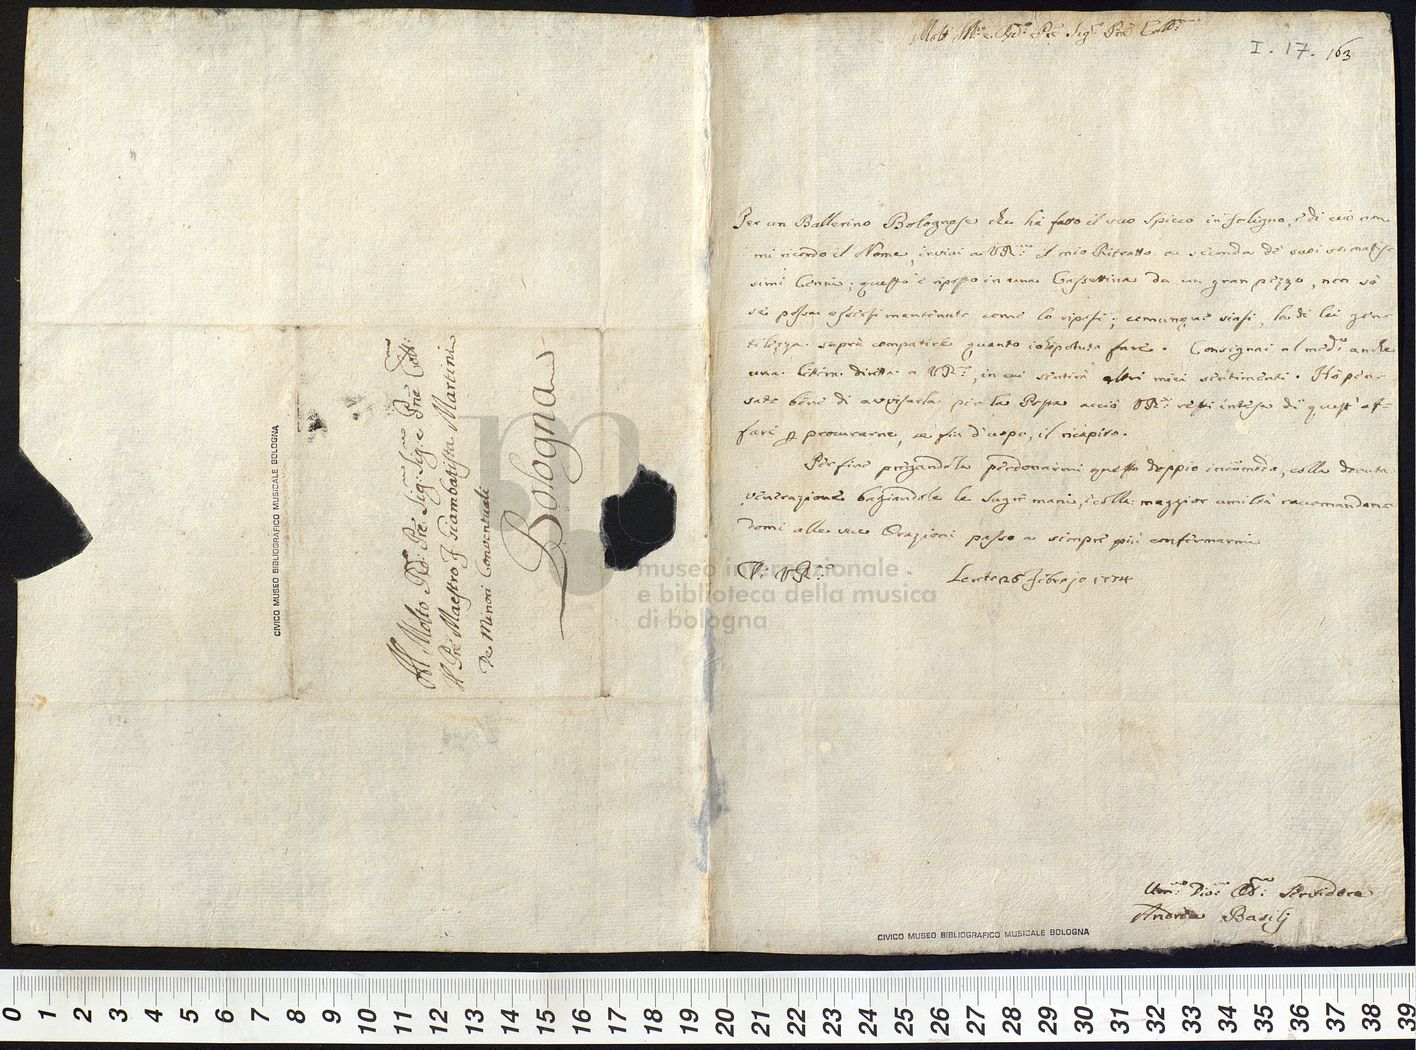 I. 17. 163
Molto Ill.e e Rd.o Pre Sig.e Pre Coll.mo
Per un Ballerino Bolognese che ha fatto il suo spicco in Foligno, e di cui non
mi ricordo il Nome, inviai a V.R.ma il mio Ritratto a seconda de suoi
simi Cenni; questo è riposto in una Cassettina da un gran pezzo, non sò
se possa essersi mantenuto come lo riposi; comunque siasi, la di lei gen-
tilezza saprà compatire quanto io potuto fare. Consignai al med.o anche
una lettera diretta a V.R.ma, in cui sentirà altri miei sentimenti. Hò pen-
sato bene di avvisarla per la Posta acciò V.R.ma resti intesa di quest' af-
fare p procurarne, se fia d'uopo, il ricapito.
Per fine pregandola perdonarmi questo doppio incomodo, colla dovuta
venerazione bagiandole le sagre mani, e colla maggior umiltà raccomandan-
domi alle sue Orazioni passo a sempre più confirmarmi
D: V.R.ma
Loreto 26 Febrajo 1774
Um.mo Div.mo Obb.mo Servidore
Andrea Basilj
CIVICO MUSEO BIBLIOGRAFICO MUSICALE BOLOGNA
Al Molto Rd.o Pre Sig.e Sig.e e Pre Coll.mo
Il Pre Maestro F. Giambatista Martini
De Minori Conventuali
Bologna
CIVICO MUSEO BIBLIOGRAFICO MUSICALE BOLOGNA
museo internazionale
e biblioteca della musica
di bologna
0 1 2 3 4 5 6 7 8 9 10 11 12 13 14 15 16 17 18 19 20 21 22 23 24 25 26 27 28 29 30 31 32 33 34 35 36 37 38 39